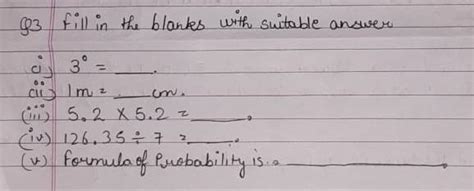 Q3 Fill in the blanks with suitable answer
i) 3° = ____.
ii) 1m = ____ cm.
(iii) 5.2 × 5.2 = ____.
(iv) 126.35 ÷ 7 = ____.
(v) Formula of Probability is = ____.